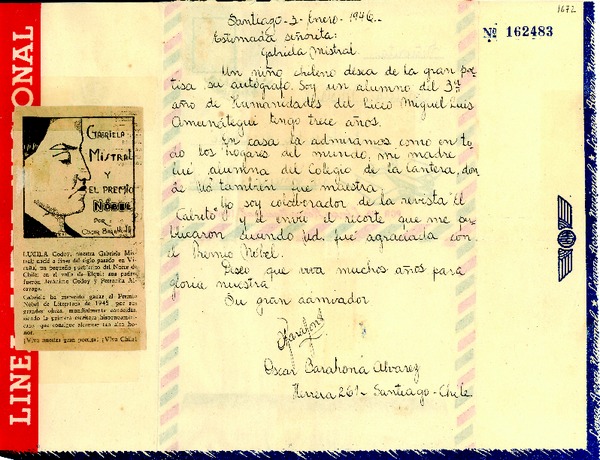 1672
Nº 162483
Santiago - 2 - Enero - 1946..
Estimada señorita:
Gabriela Mistral.
Un niño chileno desea de la gran poe-
tisa su autógrafo. Soy un alumno del 3er
año de Humanidades del Liceo Miguel Luis
Amunátegui tengo trece años.
En casa la admiramos como en to
do los hogares del mundo, mi madre
fué alumna del Colegio de la Cantera, don
de Ud también fué maestra.
Yo soy colaborador de la revista "El
Cabrito" y le envíe el recorte que me pu
blicaron cuando Ud. fué agraciada con
el Premio Nóbel.
Deseo que viva muchos años para
gloria nuestra
Su gran admirador
OBarahona
Oscar Barahona Alvarez
Herrera 261 - Santiago - Chile
GABRIELA
MISTRAL
Y
EL PREMIO
NÓBEL
POR:
OSCAR BARAHONA
LUCILA Godoy, nuestra Gabriela Mis-
tral; nació a fines del siglo pasado en Vi-
cuña, un pequeño pueblecito del Norte de
Chile en el valle de Elqui; sus padres
fueron Jerónimo Godoy y Petronila Al-
cayaga.
Gabriela ha merecido ganar el Premio
Nóbel de Literatura de 1945 por sus
grandes obras, mundialmente conocidas,
siendo la primera escritora hispanoameri-
cana que consigue alcanzar tan alto ho-
nor.
¡Viva nuestra gran poetisa! ¡Viva Chile!